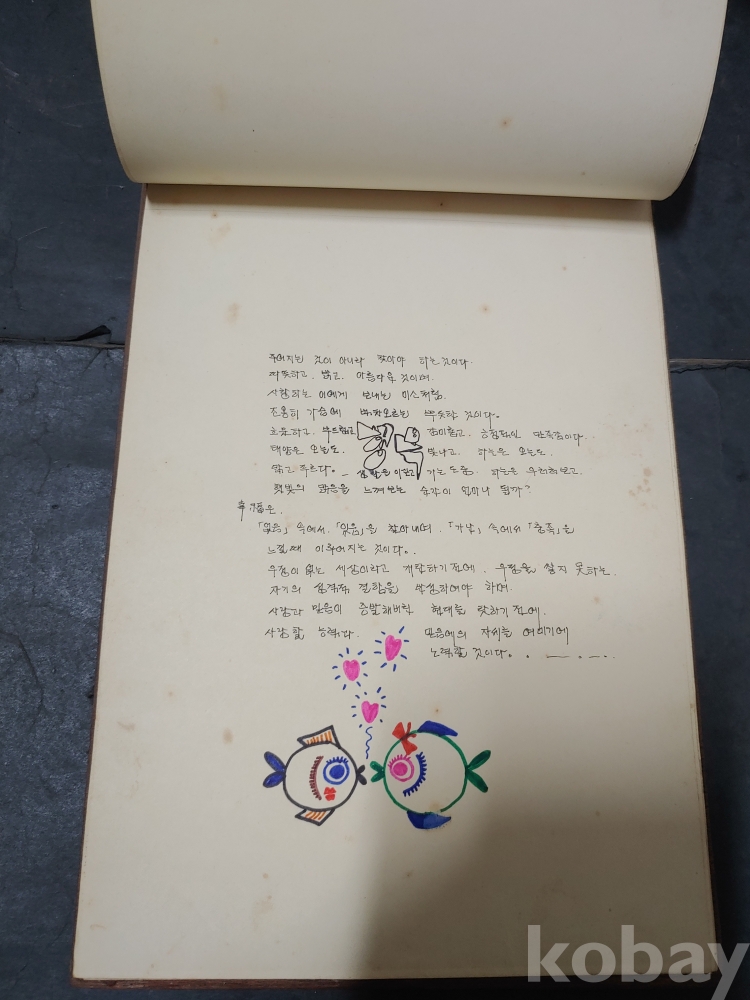 주어지는 것이 아니라 찾아야 하는것이다.
따뜻하고. 밝고. 아름다운 것이며.
사랑하는 이에게 보내는 미소처럼.
조용히 가슴에 벅차오르는 뿌듯한 것이다.
흐뭇하고. 부드럽고 감미롭고. 만족감이다.
태양은 오늘도. 빛나고. 하늘은 오늘도.
맑고 푸르다。_ 생활은 이런고 가는 도중. 하늘을 우러러보고.
햇빛의 맑음을 느껴보는 순간이 얼마나 될까?
幸福은.
「없음」 속에서.「있음」을 찾아내며.「가난」 속에서「충족」을
느낄때 이루어지는 것이다。.
우정이 없는 세상이라고 개탄하기전에. 우정을 쌓지 못하는.
자기의 성격적 결함을 반성하여야 하며.
사랑과 믿음이 증발해버린 현대를 탓하기 전에.
사랑할 능력과. 믿음에의 자세를 여미기에
노력할 것이다。
kobay